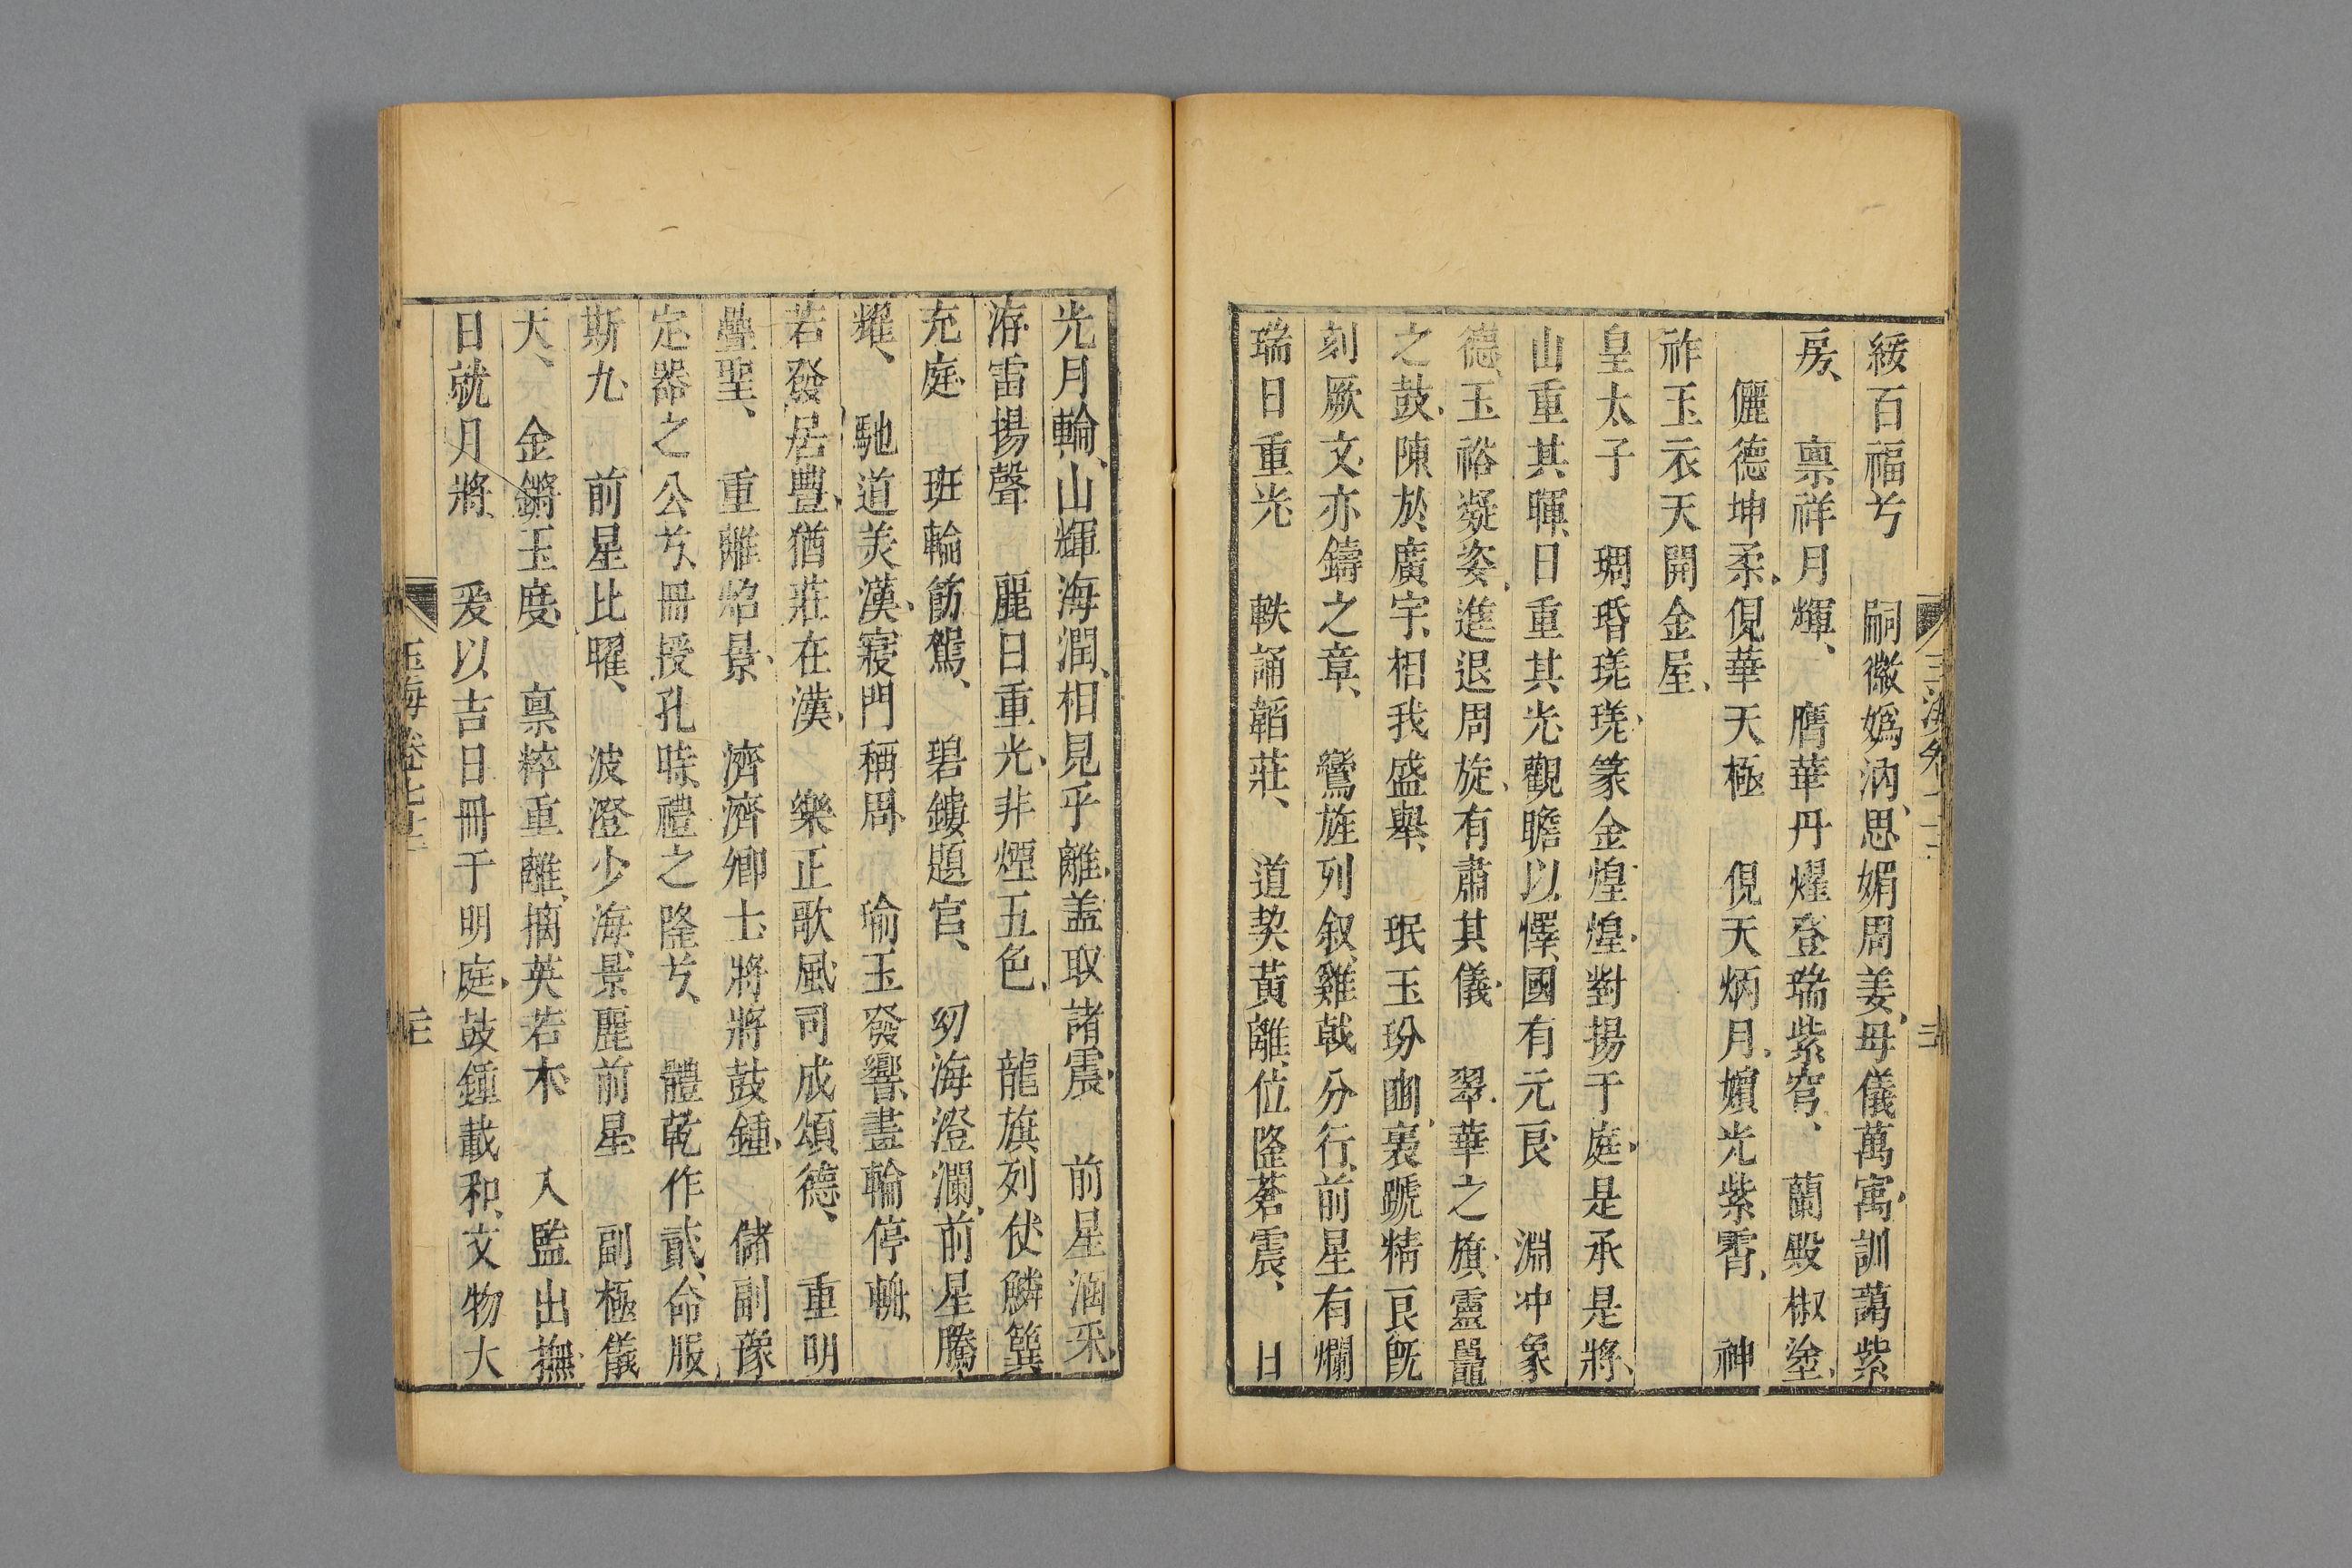 綏百福兮　嗣徽嬀汭思媚周姜母儀萬寓訓藹紫
房　禀祥月輝　膺華丹燿登瑞紫穹　蘭殿椒塗
儷德坤柔俔華天極　俔天炳月嬪光紫霄　神
祚玉衣天開金屋
皇太子　琱瑉琖琖篆金煌煌對揚于庭是承是將
山重其暉日重其光觀瞻以懌國有元良　淵冲象
德玉裕凝姿進退周旋有肅其儀　翠華之旗靈鼉
之鼓陳於廣宇相我盛舉　珉玉玢豳裹蹏精良旣
刻厥文亦鑄之章　鸞旌列叙雞戟分行前星有爛
瑞日重光　軼誦韜莊　道契黃離位隆蒼震　日
光月輪山輝海潤相見乎離盖取諸震　前星涵采
洊雷揚聲　麗日重光非煙五色　龍旗列仗鱗簨
充庭　班輪飭駕　碧鏤題官　幼海澄瀾前星騰
耀　馳道美漢寢門稱周　瑜玉發響畫輪停輈
若發居豐猶莊在漢　樂正歌風司成頌德　重明
疊聖　重離焰景　濟濟卿士將將鼓鍾　儲副豫
定器之公兮冊授孔時禮之隆兮　體乾作貳命服
斯九　前星比曜　波澄少海景麗前星　副極儀
天　金鏘玉度　禀粹重離摛英若木　入監出撫
日就月將　爰以吉日冊于明庭鼓鍾載和文物大
玉海卷七十